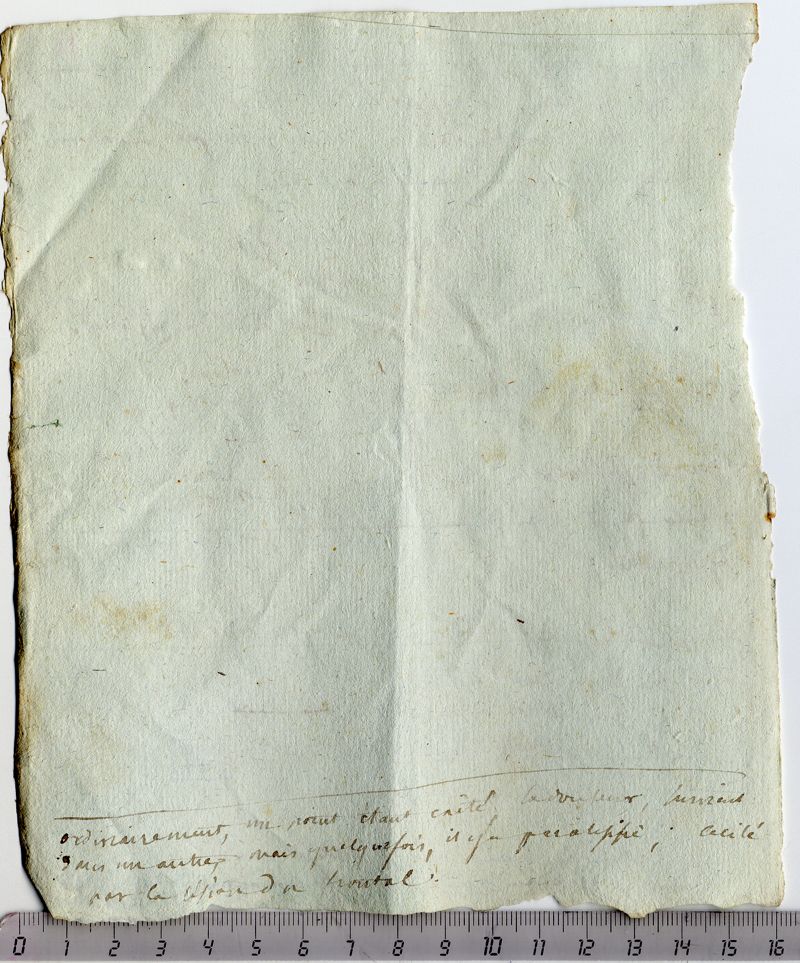 ordinairement, un point étant excité, la douleur, survient
dans un autre, mais quelquefois, il y a paralysie ; cécité
par la lésion du frontal.
0 1 2 3 4 5 6 7 8 9 10 11 12 13 14 15 16